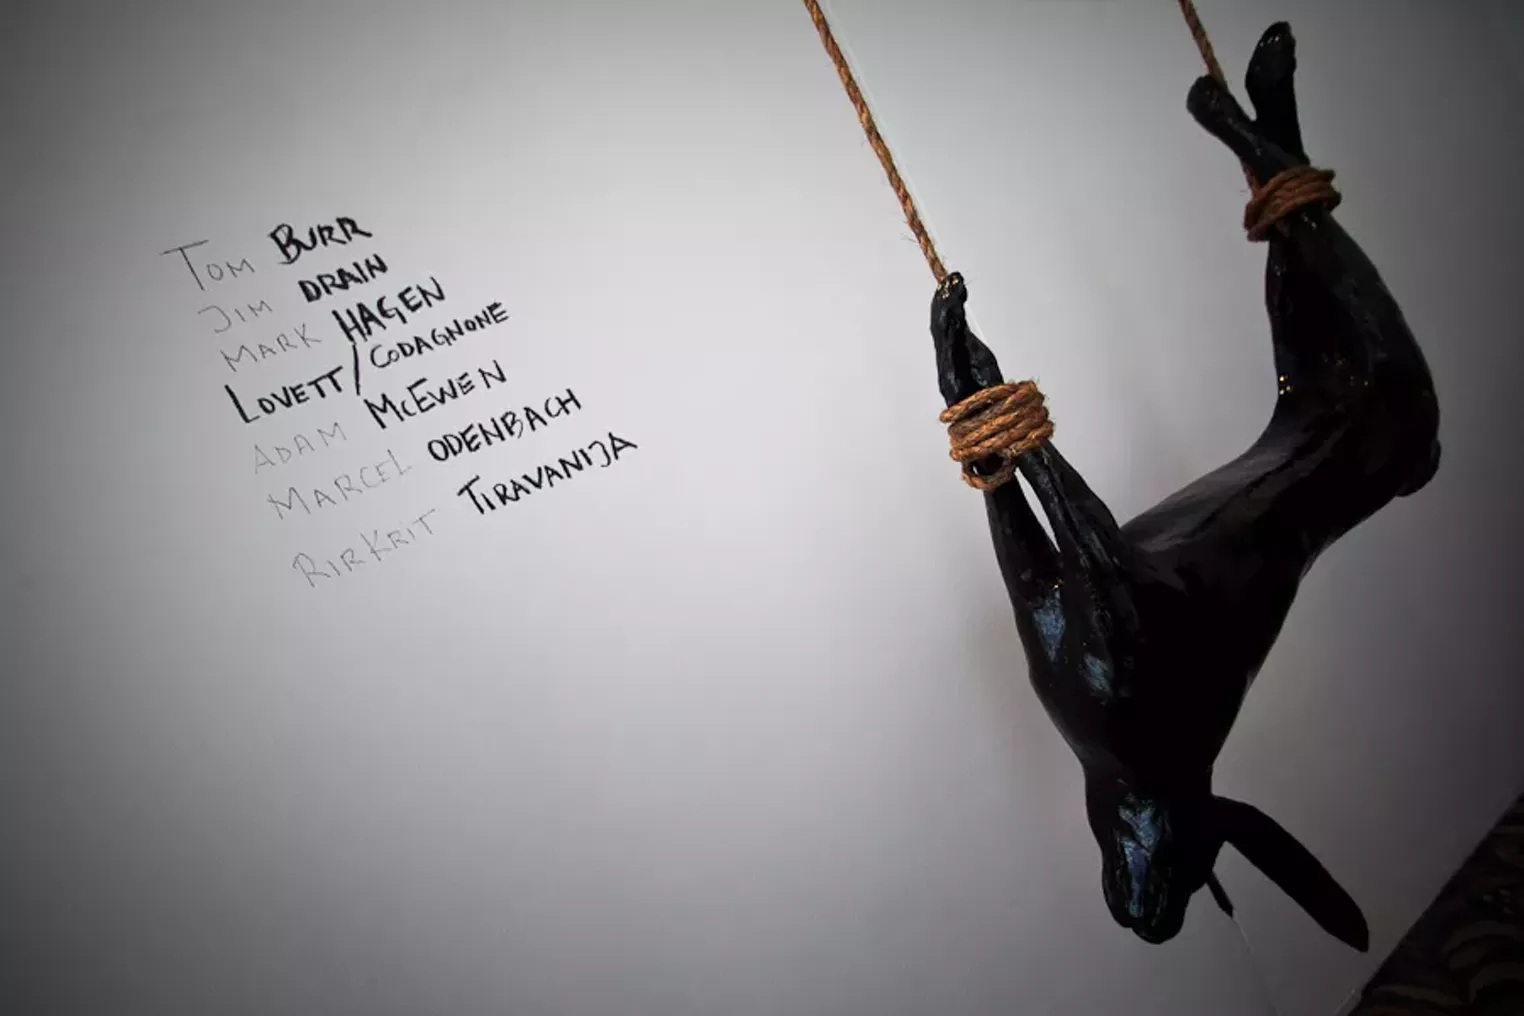 TOM BURR
JIM DRAIN
MARK HAGEN
LOVETT/CODAGNONE
ADAM McEWEN
MARCEL ODENBACH
RIRKRIT TIRAVANIJA